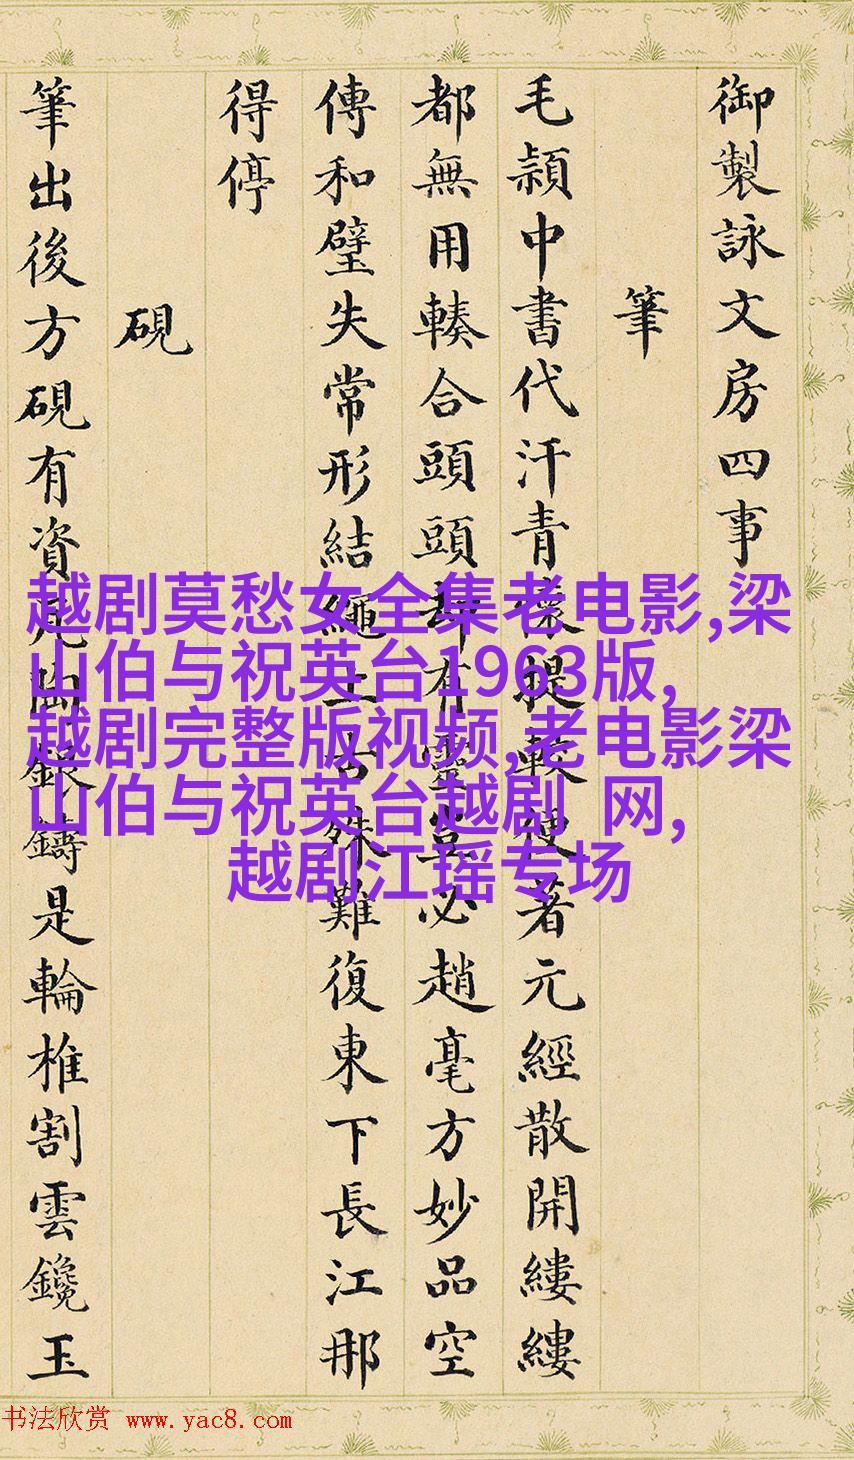 御製詠文房四事
筆
毛頴中書代汗青懷提較硬著元經散開縷縷
都無用輳合頭頭却有靈豈必趙毫方妙品空
傳和璧失常形結繩上古殊難復東下長江那
得停
硯
筆出後方硯有資鑄是輪椎割雲鑱玉
越剧莫愁女全集老电影,梁
山伯与祝英台1963版,
越剧完整版视频,老电影梁
山伯与祝英台越剧 网,
越剧江瑶专场
书法欣赏 www.yac8.com